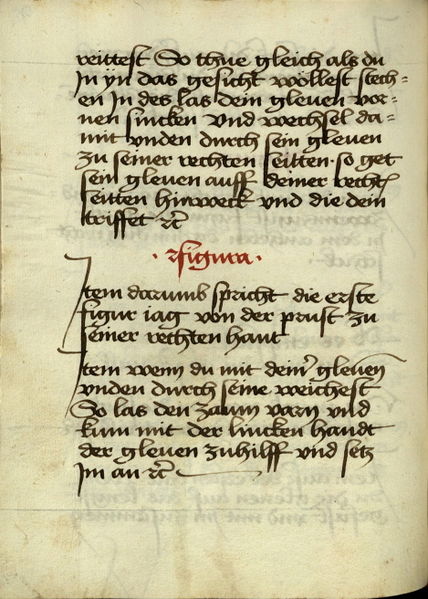 reittest So thue gleich als du
In yn das gesicht wöllest stech=
en In des las dein gleuen vor=
nen sincken vnd wechsel da=
mit vnden durch sein gleuen
zu seiner rechten seitten · so get
sein gleuen auff deiner recht
seitten hinweck vnd die dein
triffet ꝛc
· 2figura ·
Item darumb spricht die erste
figur iag von der prust zu
seiner rechten hant
Item wenn du mit deiner gleuen
vnden durch seine weichest
So las den zaum varn vnd
kum mit der lincken handt
der gleuen zuhilff vnd setz
im an ꝛc